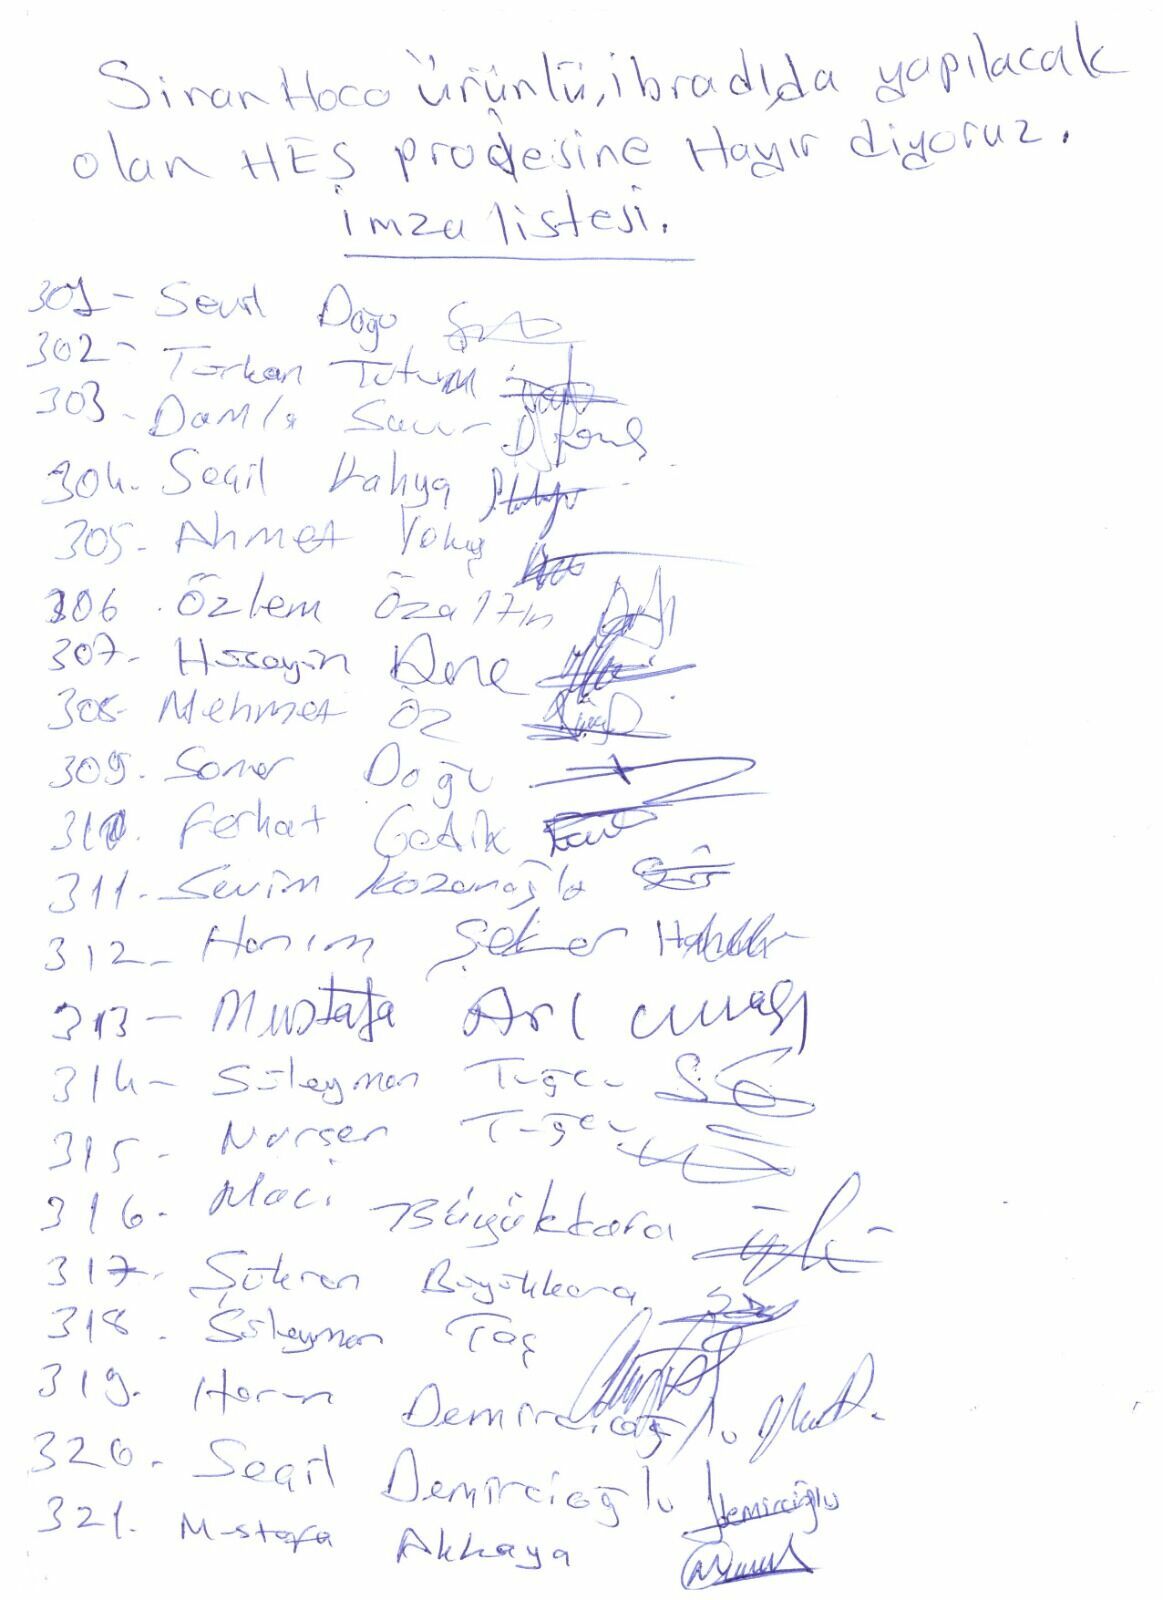 Sinan Hoca Ürünlü, ibradı,da yapılacak
olan HEŞ projesine Hayır diyoruz.
imza listesi.
301- Sevil Doğu
302- Türkan Tutum
303- Damla
304. Seçil Kahya
305- Ahmet Yokuş
306. Özlem Özaltın
307- Hüseyin
308- Mehmet Öz
309. Soner Doğu
310. Ferhat Gedik
311. Sevim Kozanoğlu
312- Hanım Şeker
313- Mustafa Arı
314- Süleyman Tuğcu
315- Nurşen Tuğcu
316. Naci Büyükkara
317- Şükran Büyükkara
318. Süleyman Taş
319. Harun Demircioğlu
320. Seçil Demircioğlu Demircioğlu
321. Mustafa Akkaya